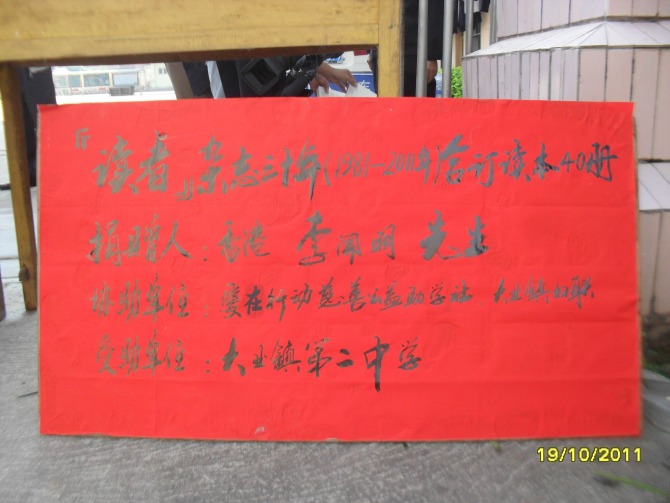 『读者』杂志三十年(1981-2011年)合订读本40册
捐赠人：香港 李闻海 先生
协助单位：爱在行动慈善公益助学社、大业镇妇联
受助单位：大业鎮第二中学
19/10/2011